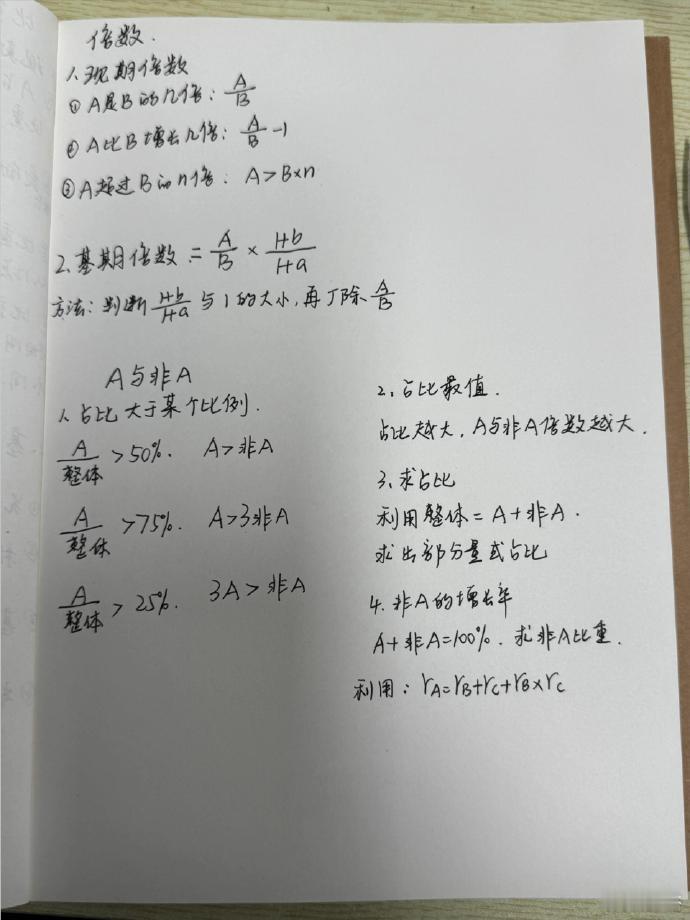 倍数.
1、现期倍数
① A是B的几倍：A/B
② A比B增长几倍：A/B -1
③ A超过B的n倍：A>B×n
2、基期倍数：= A/B × 1+b/1+a
方法：判断 1+b/1+a 与1的大小，再 除 A/B
A与非A
1、占比大于某个比例.
A/整体 >50%. A>非A
A/整体 >75%. A>3非A
A/整体 > 25%. 3A>非A
2、占比最值.
占比越大，A与非A倍数越大.
3、求占比
利用整体=A+非A.
求出部分量或占比
4、非A的增长率
A+非A=100%. 求非A比重.
利用：rA=rB+rC+rB×rC